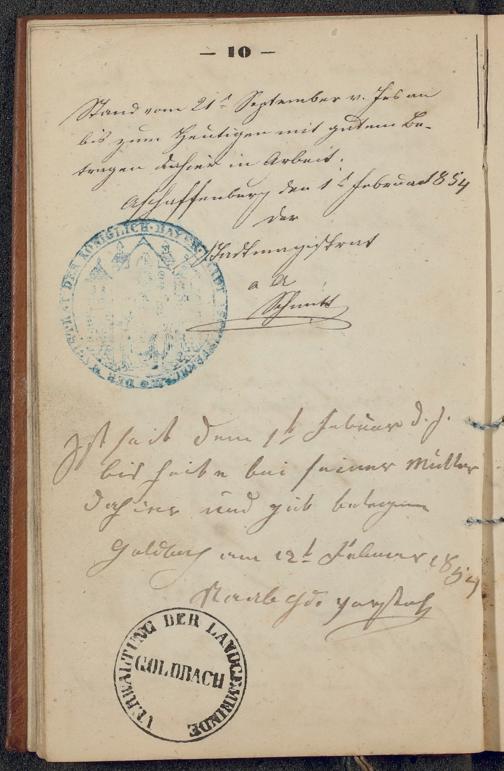 — 10 —
Stand vom 21t September v. Jrs an
bis zum Heutigen mit gutem Be-
tragen dahier in Arbeit.
Aschaffenburg den 1t Februar 1854
Der
Stadtmagistrat
Schmitt
DER KÖNIGLICH BAYER. STADT
Ist seit dem 1t Februar d. J.
bis heute bei seiner Mutter
dahier und gut betragen
Goldbach am 12t Februar 1854
Vorsteh
VERWALTUNG DER LANDGEMEINDE
GOLDBACH